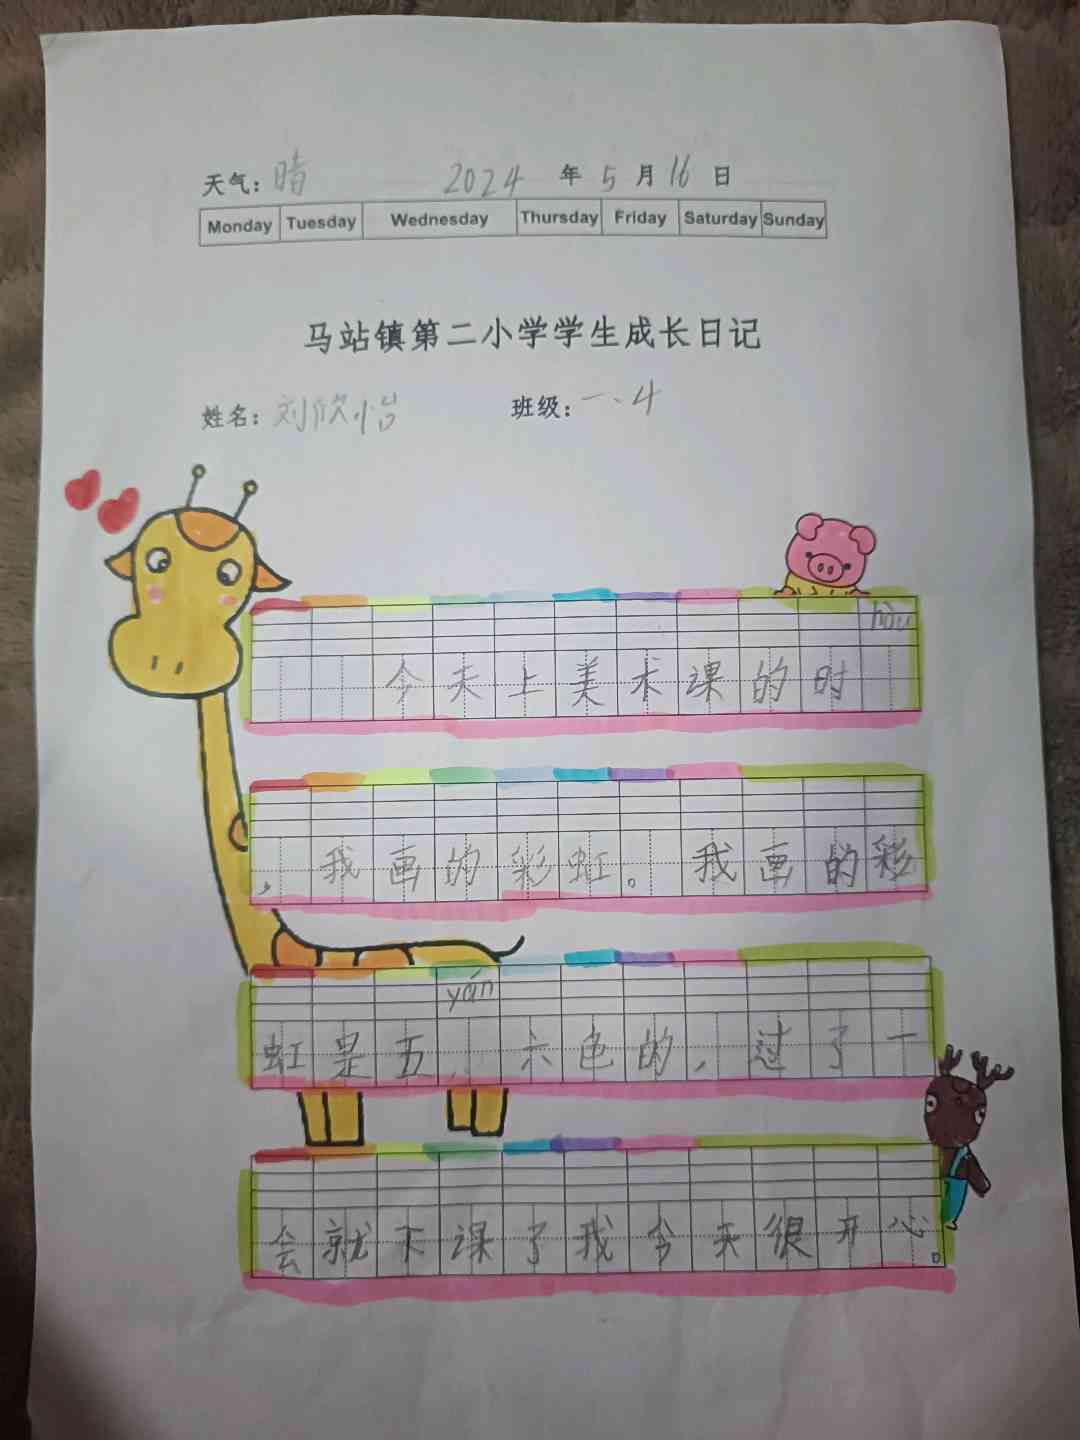 天气：晴 2024 年 5 月 16 日
Monday Tuesday Wednesday Thursday Friday Saturday Sunday
马站镇第二小学学生成长日记
姓名：刘欣怡 班级：一、4
hòu
今天上美术课的时
，我画的彩虹。我画的彩
yán
虹是五，六色的，过了一
会就下课了我今天很开心。